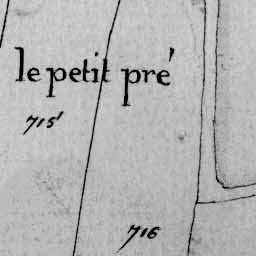 le petit pré
715'
716